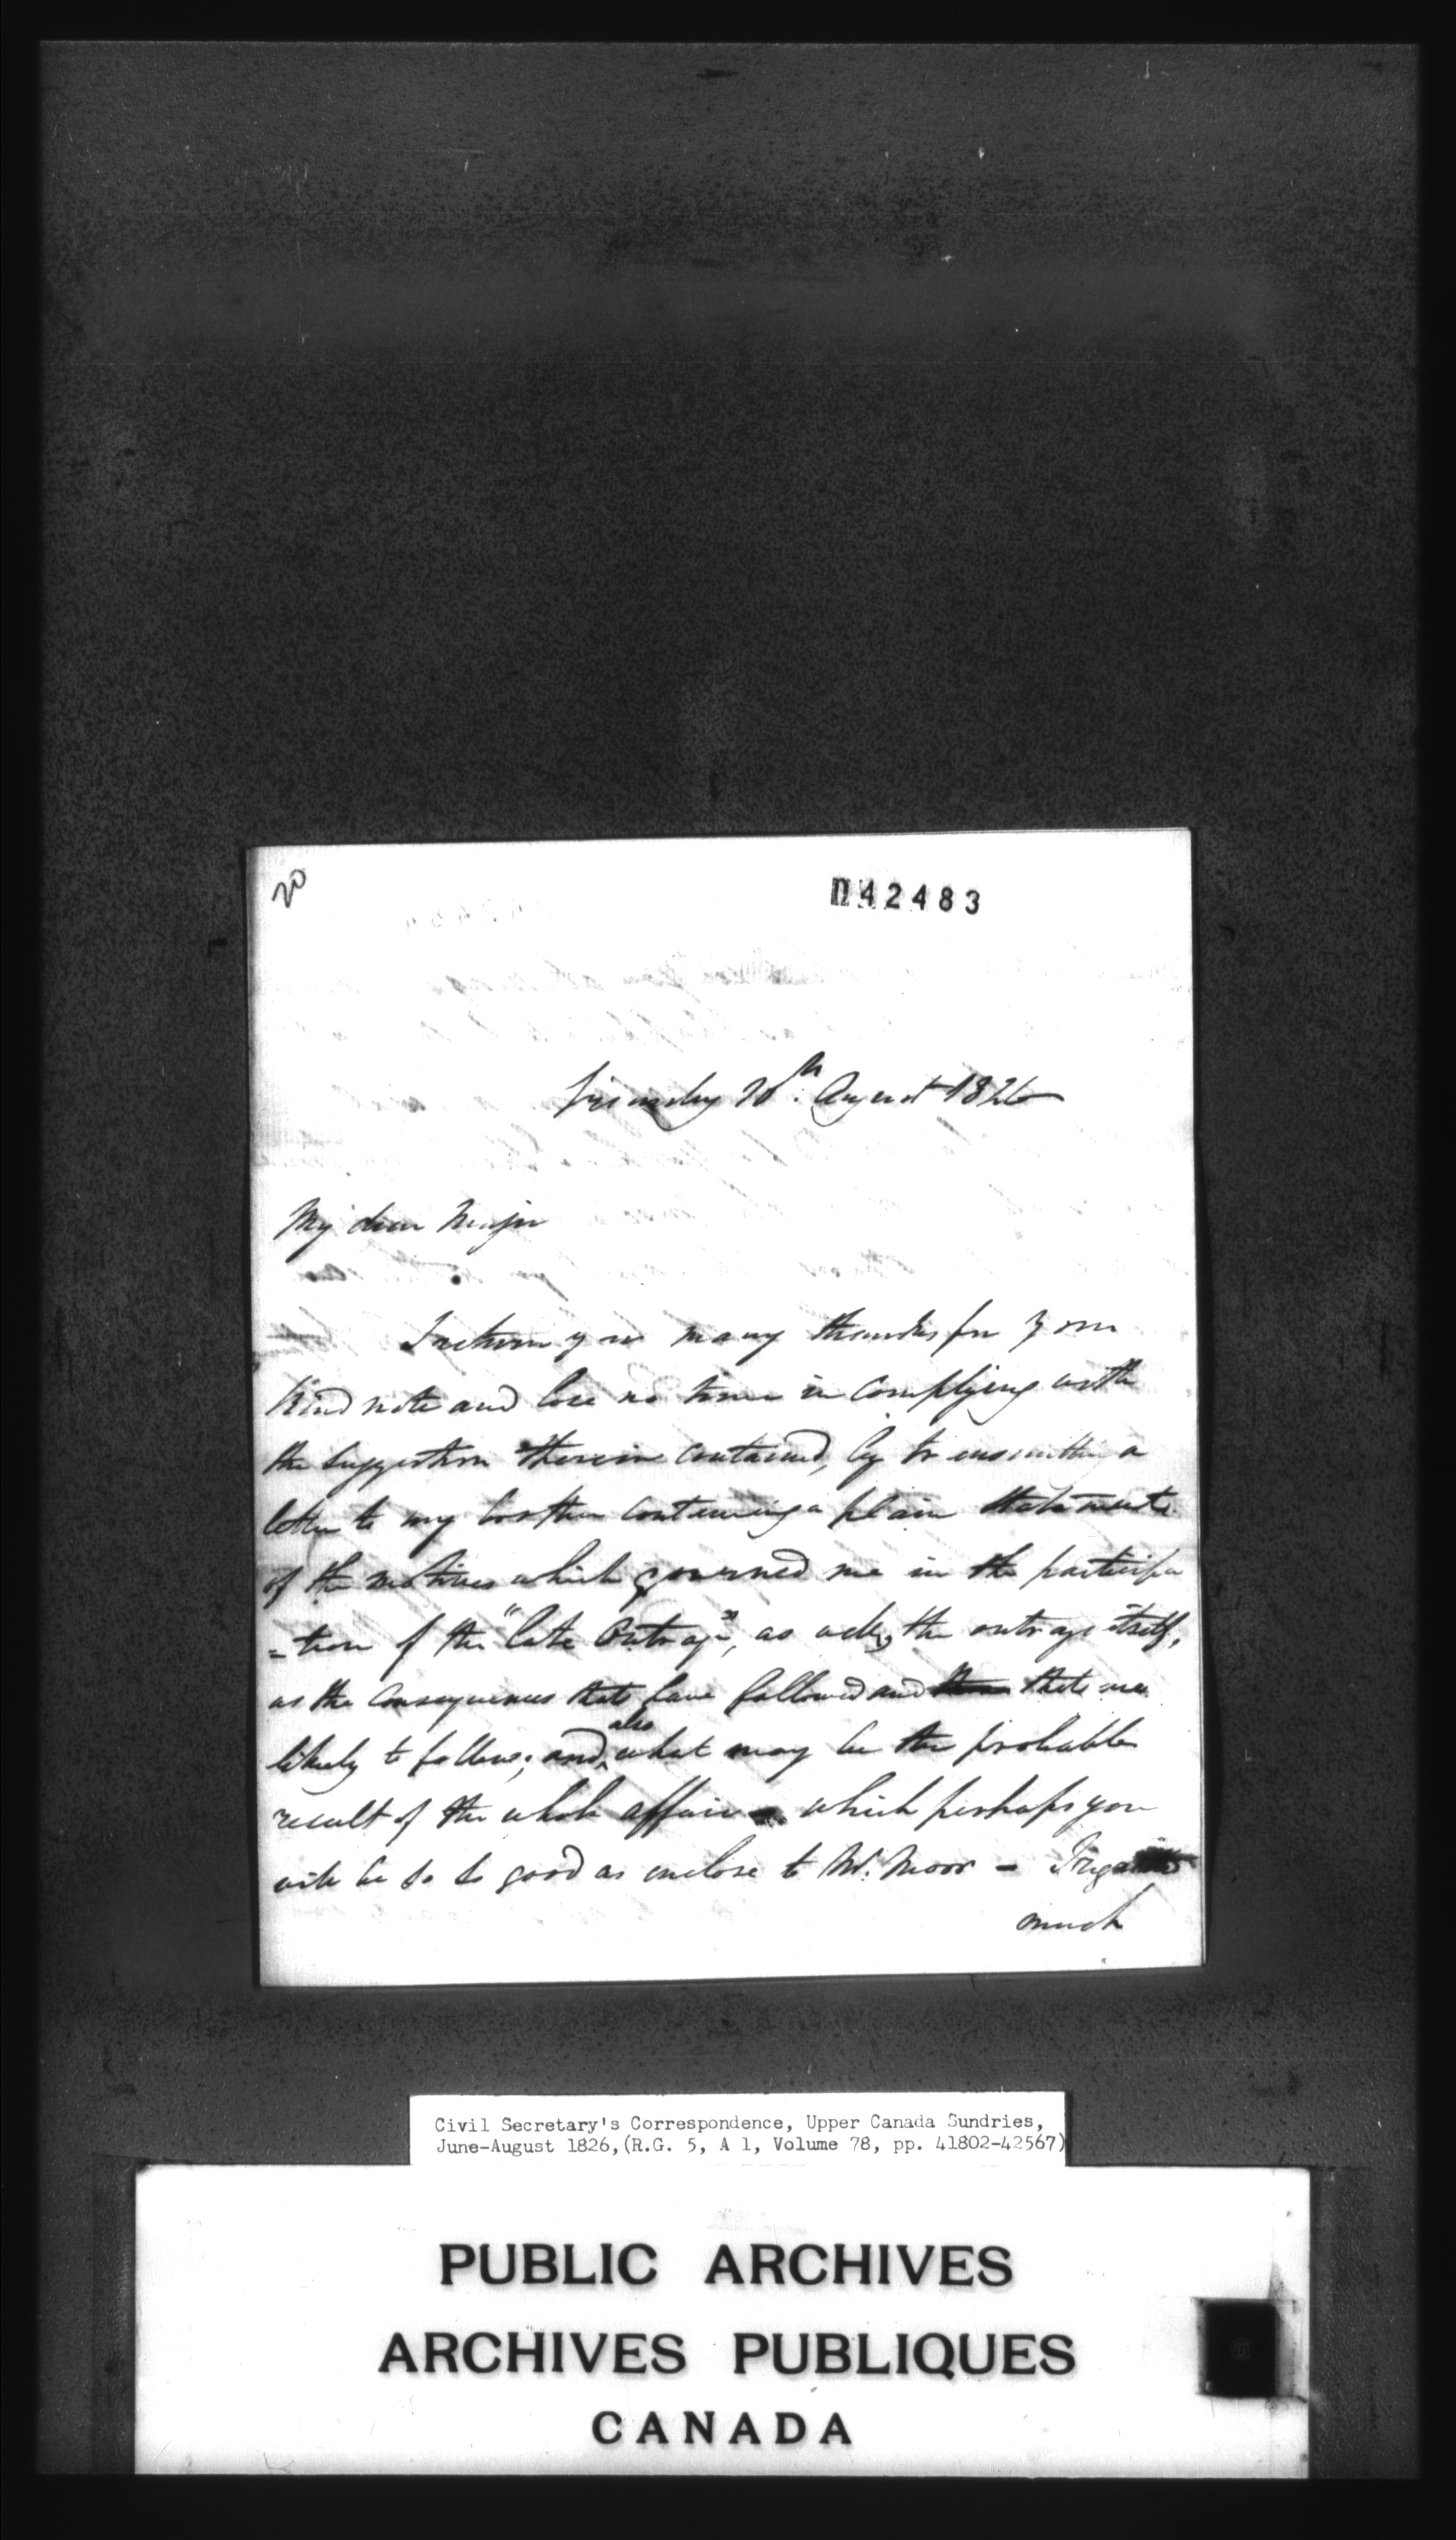 20
042483
20th. August 1826
My dear Major
I return you many thanks for your
kind note and lose no time in complying with
the suggestion therein contained, by transmitting a
letter to my brother containing a plain statement
of the motives which governed me in the participa
=tion of the "late Outrage", as well, the outrage itself,
as the consequences that have followed and that are
likely to follow; and also what may be the probable
result of the whole affair which perhaps you
will be so so good as enclose to Mr. Moor -
much
Civil Secretary's Correspondence, Upper Canada Sundries,
June-August 1826, (R.G. 5, A 1, Volume 78, pp. 41802-42567)
PUBLIC ARCHIVES
ARCHIVES PUBLIQUES
CANADA